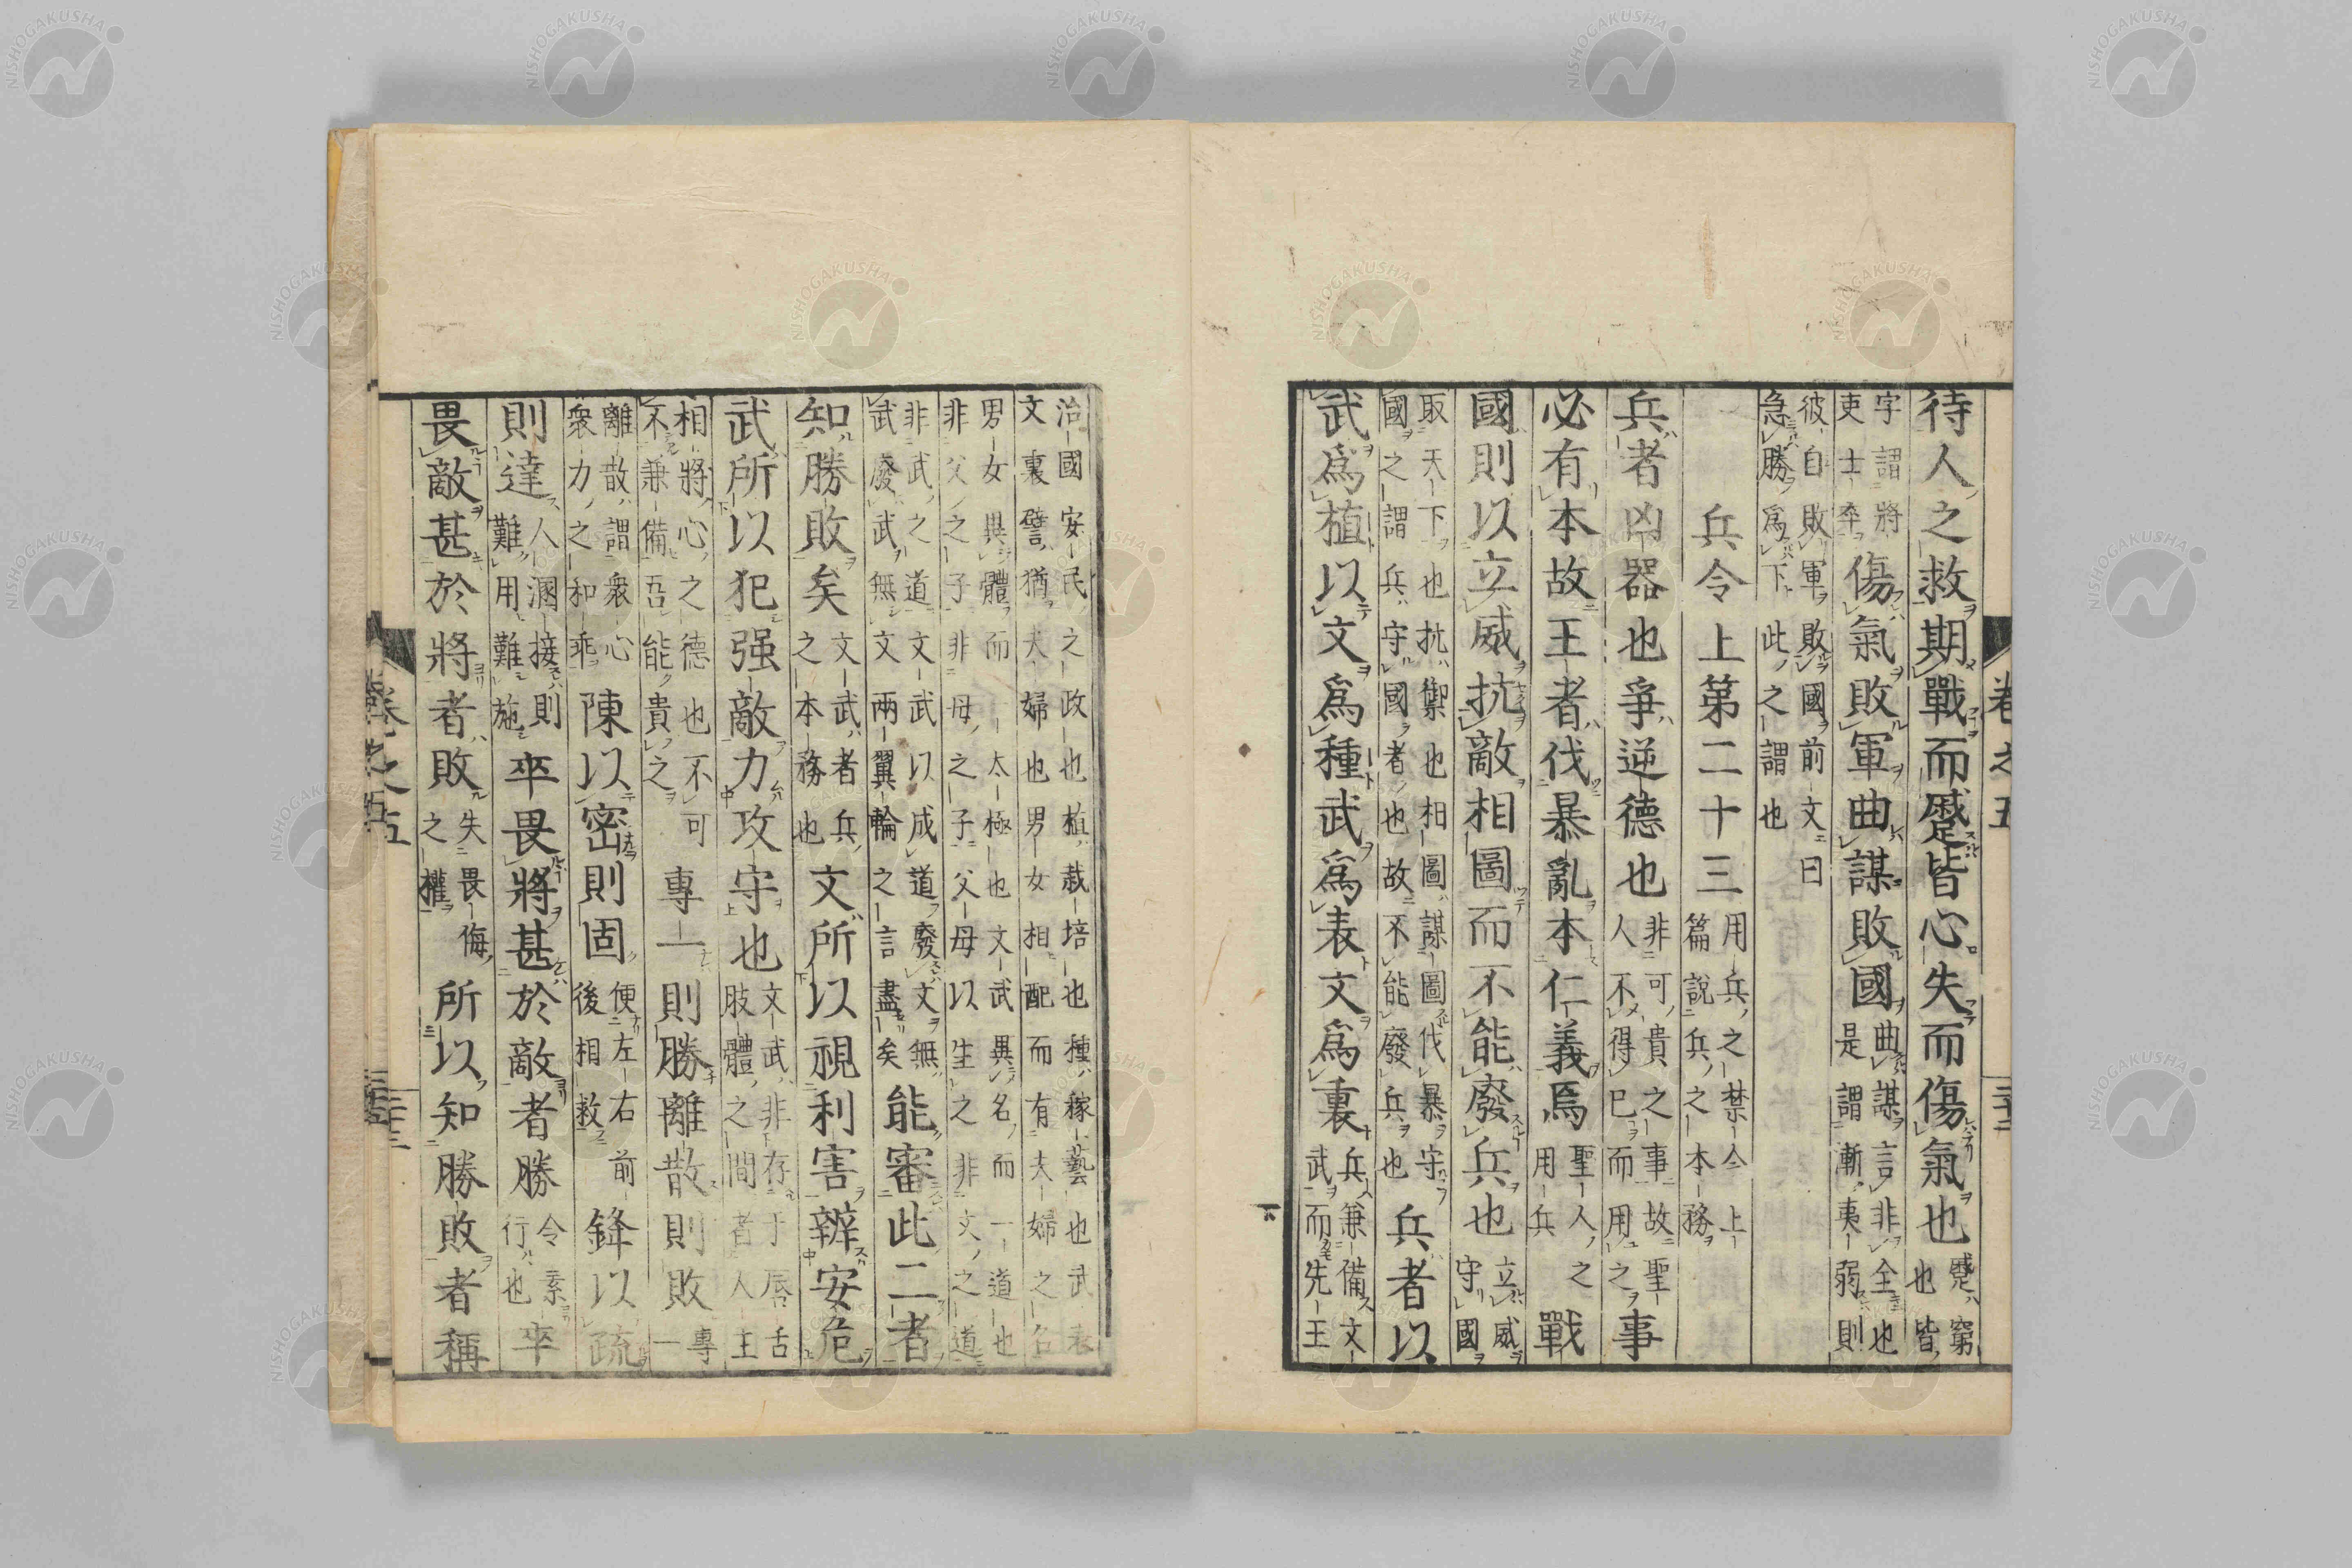 待人之救期戰而蹙皆心失而傷氣也蹙窮也皆
字謂將吏士卒傷氣敗軍曲謀敗國曲謀言非全也是謂漸夷弱則
彼自敗軍敗國前文曰急勝爲下此之謂也
兵令上第二十三用兵之禁令上篇說兵之本務
兵者凶器也爭逆德也非可貴之事故聖人不得已而用之事
必有本故王者伐暴亂本仁義焉聖人之用兵戰
國則以立威抗敵相圖而不能廢兵也立威守國
取天下也抗禦也相圖謀圖伐暴守國之謂兵守國者也故不能廢兵也兵者以
武爲植以文爲種武爲表文爲裏兵兼備文武而先王
卷之五
三十二
治國安民之政也植栽培也種稼藝也武表文裏譬猶夫婦也男女相配而有夫婦之名
男女異體而一太極也文武異名而一道也非父之子非母之子父母以生之非文之道
非武之道文武以成道廢文無武廢武無文兩翼輪之言盡矣能審此二者
知勝敗矣文武者兵之本務也文所以視利害辨安危
武所以犯强敵力攻守也文武非存于唇舌肢體之間者人主
相將心之德也不可不兼備吾能貴之專一則勝離散則敗專一
離散謂衆心衆力之和乖陳以密則固便左右前後相救鋒以疏
則達人溷接則難用難施卒畏將甚於敵者勝令素行也卒
畏敵甚於將者敗失畏侮之權所以知勝敗者稱
卷之五